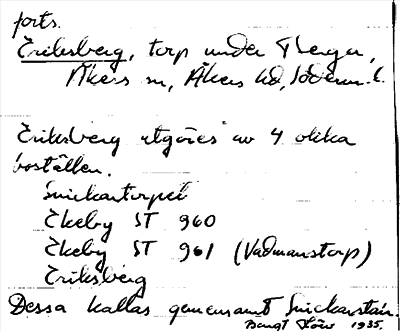 forts.
Eriksberg, torp under Berga,
Åkers sn, Åkers hd, Söderm. l.
Eriksberg utgöres av 4 olika
boställen.
Snickartorpet
Ekeby ST 960
Ekeby ST 961 (Vadmanstorp)
Eriksberg
Dessa kallas gemensamt Snickarstan.
Bengt Löw 1935.